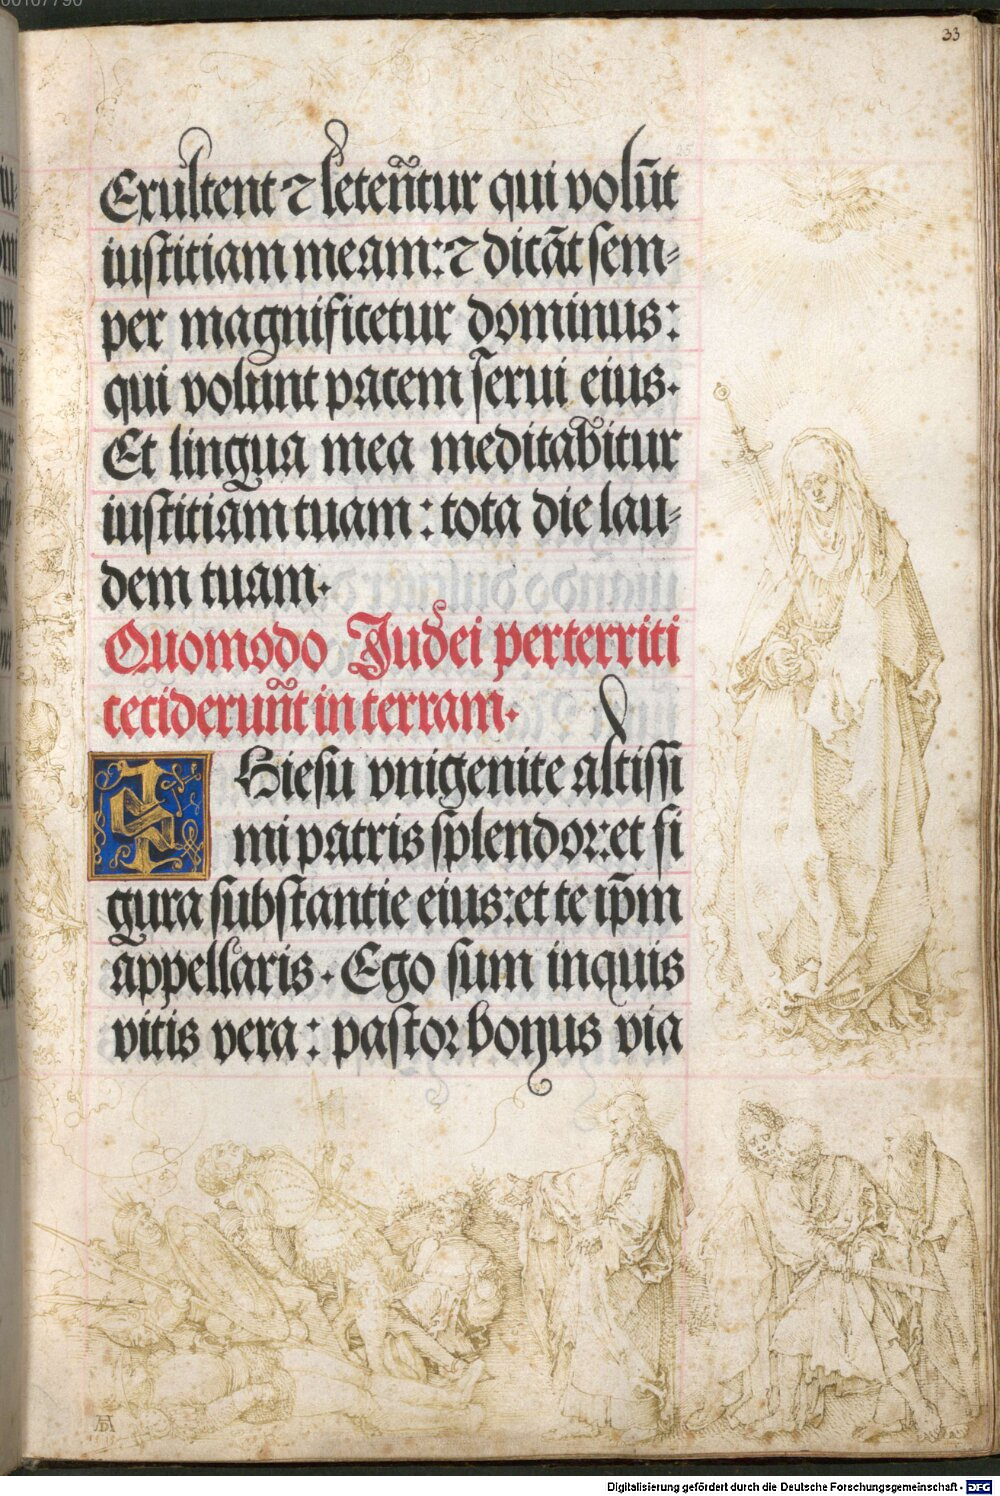 33
Exultent ⁊ letēntur qui volūt
iustitiam meam: ⁊ dicāt sem-
per magnificetur dominus:
qui volunt pacem serui eius.
Et lingua mea meditabitur
iustitiam tuam: tota die lau-
dem tuam.
Quomodo Judei perterriti
ceciderunt in terram.
Hiesu vnigenite altissi
mi patris splendor: et fi
gura substantie eius: et te ip̄m
appellaris. Ego sum inquis
vitis vera: pastor bonus via
AD
Digitalisierung gefördert durch die Deutsche Forschungsgemeinschaft - DFG